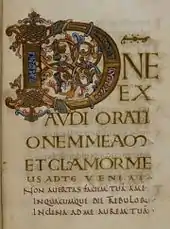 D NE
EX
AUDI ORATI
ONEM MEAM
ET CLAMOR ME
US AD TE VENIAT
NON AUERTAS FACIEM TUA A ME
IN QUACUMQUE DIE TRIBULOR
INCLINA AD ME AUREM TUA